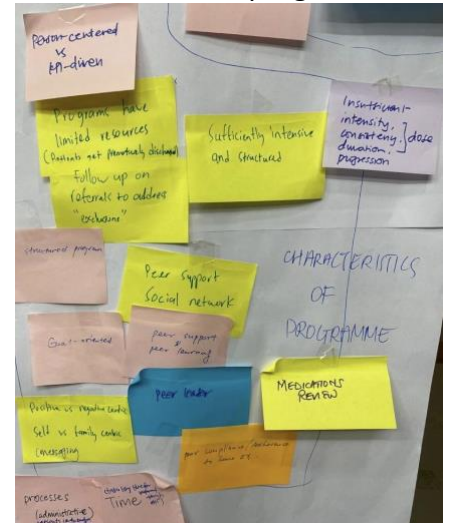 Person-centered
vs
KPI-driven
Programs have
limited resources
(Patients get prematurely discharged)
Follow up on
referrals to address
"exclusions"
Sufficiently intensive
and structured
Insufficient
intensity,
consistency,
duration,
progression
] dose
structured program
Peer support
Social network
CHARACTERISTICS
OF
PROGRAMME
Goal-oriented
peer support
peer learning
Peer leader
MEDICATIONS
REVIEW
Positive vs negative centric
Self vs family centric
poor compliance/
processes
(administrative)
Time